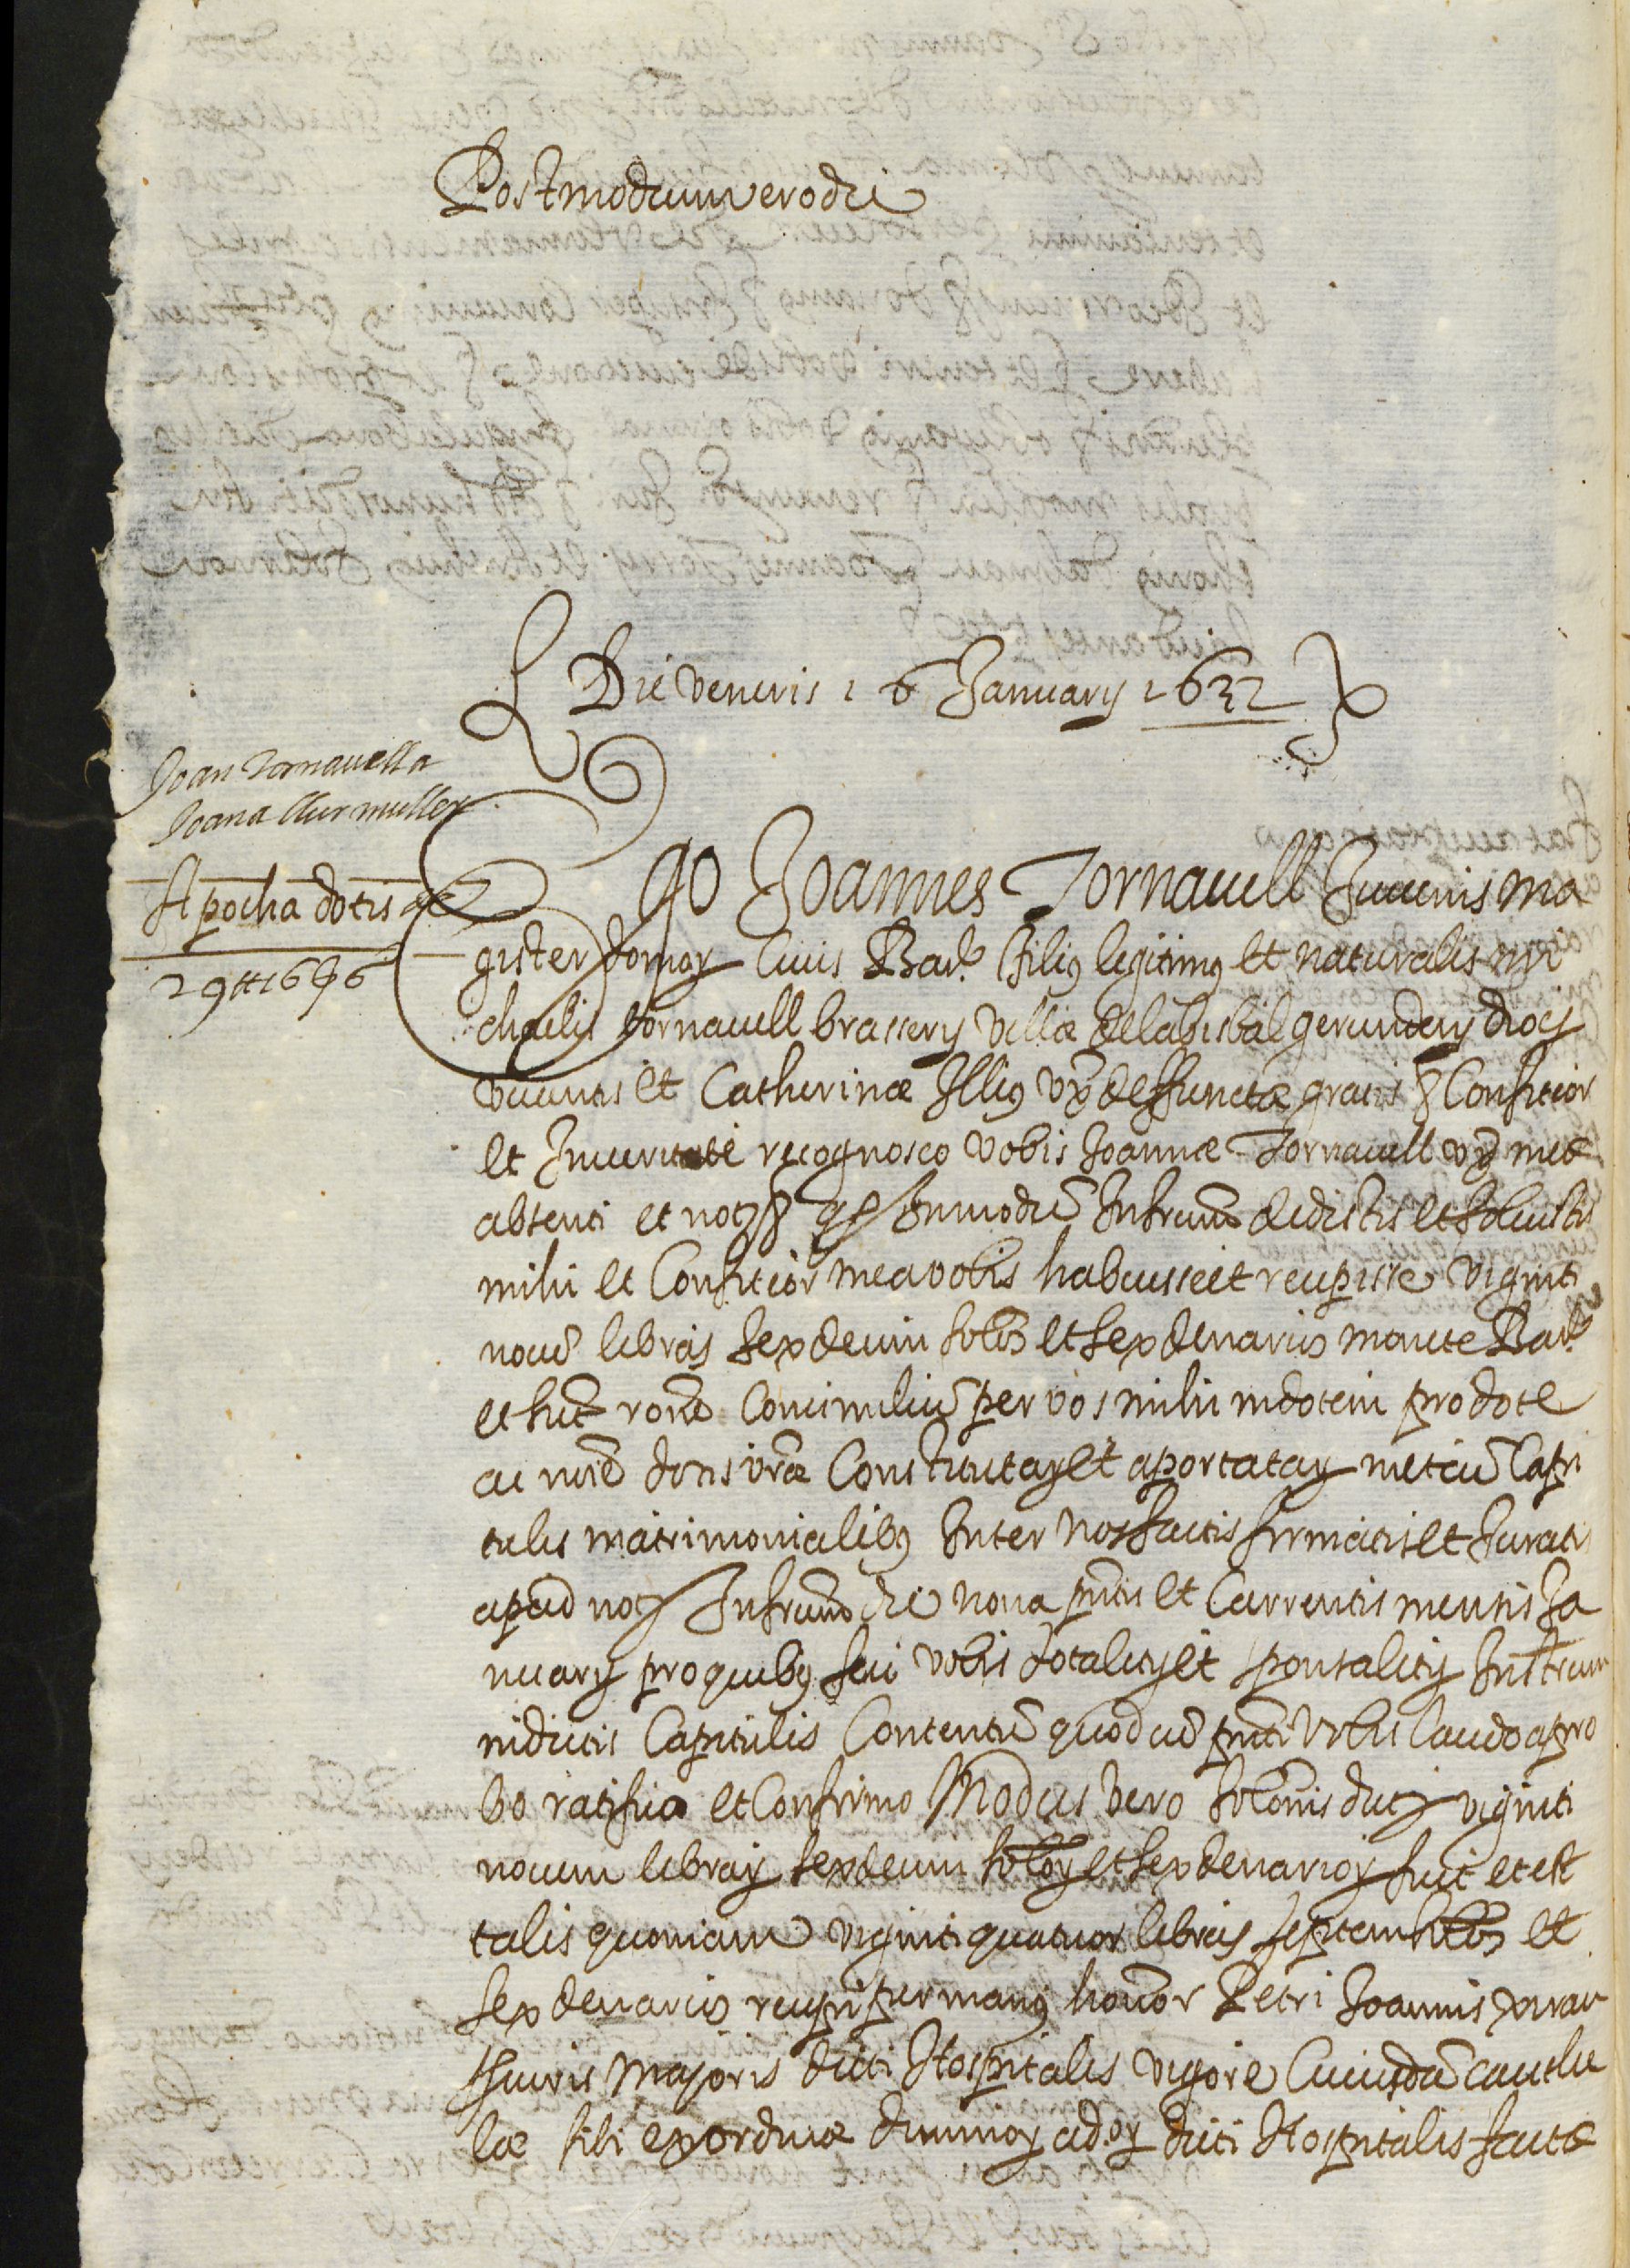 Postmodum vero die
Die veneris 16 Januarij 1632
Joan Tornavella
Joana Llur muller
Apocha dotis de
29 ₶ 16 ß 6
Ego Joannes Tornavell Juvenis ma
gister domoꝝ Civis Barᵉ filiꝰ legitimꝰ et naturalis mi
chaelis tornavell brasserij villæ de la bisbal gerundeñ diocꝭ
viventis et Catherinæ Illiꝰ vx̄ deffunctæ gratis &ᵃ Confiteor
et In veritate recognosco vobis Joannæ Tornavell vx̄ meæ
absenti et notꝭ &ᵃ qꝭ In modū Infrūm dedistis et solvistis
mihi et Confiteor me a vobis habuisse et recepisse viginti
novē libras sexdecim solōs et sex denarios monetæ Barᵉ
et sūt rōne Consimiliū per vos mihi in dotem pro dote
ac noīe dotis vr̄æ Constitutaꝝ et aportataꝝ mediā Capi
tulis matrimonialibꝰ Inter nos factis firmatis et Juratis
apud notꝭ Infrūm die nona p̄ntis et Currentis mensis Ja
nuarij pro quibꝰ feci vobis dotaliꝭ et sponsaliꝭ Instrum
in dictis Capitulis Contentū quod cū p̄nti vobis laudo apro
bo ratifico et Confirmo Modus vero solōnis dictꝭ viginti
novem libraꝝ sexdecim soloꝝ et sex denarioꝝ fuit et est
talis quoniam viginti quatuor libras septem solōs et
sex denarios recepi per manꝰ honōr Petri Joannis
majoris dicti Hospitalis vigore Cuiusdā cauthe
læ sibi ex ordine dominoꝝ adoꝝ dicti Hospitalis factæ